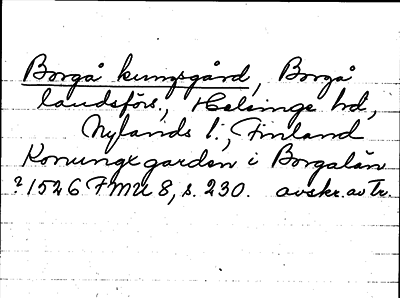 Borgå kungsgård, Borgå
landsförs., Helsinge hd,
Nylands l., Finland
Konunge garden i Borgalän
? 1526 FMU 8, s. 230. avskr. av Tr.